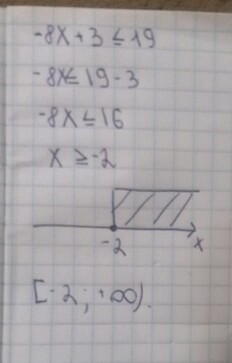 -8x + 3 ≤ 19
-8x ≤ 19 - 3
-8x ≤ 16
x ≥ -2
-2 x
[-2; +∞).